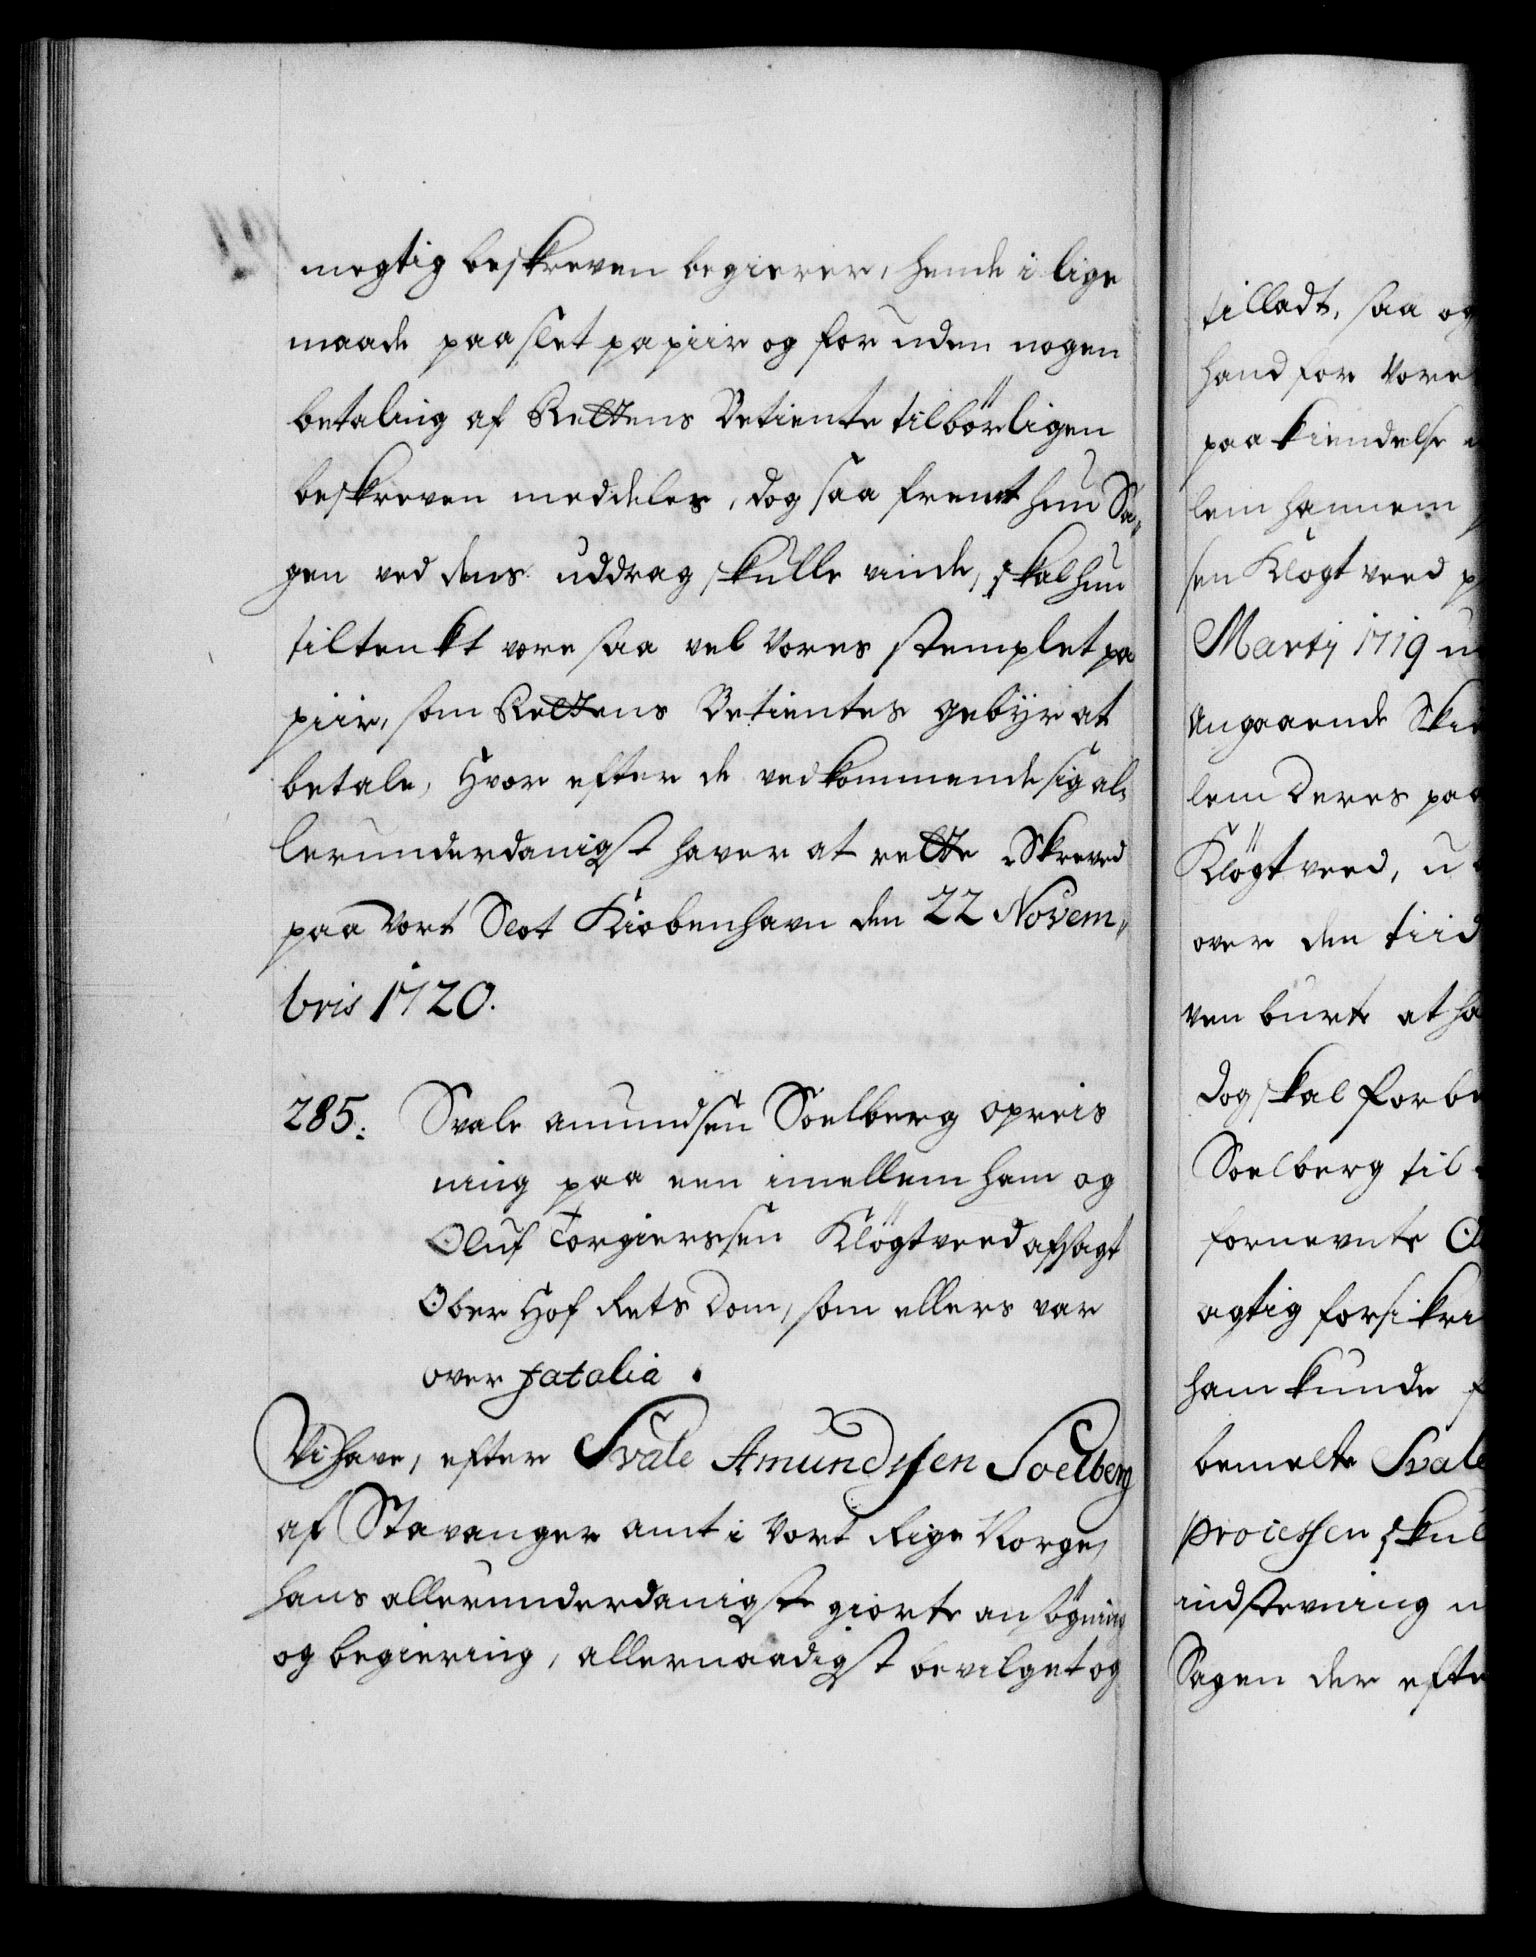 megtig beskreven begierer, hende i lige
maade paa slet papiir og for uden nogen
betaling af Rettens Betiente tilbørligen
beskreven meddeles, dog saa fremt hun Sa„
gen ved dens uddrag skulle vinde, skal hun
tiltenkt være saa vel Vores Stemplet pa
piir, som Rettens Betientes gebyr at
betale, Hvor efter de vedkommende sig al„
lerunderdanigst haver at rette. Skreved
paa Vort Slot Kiøbenhavn den 22 Novem„
bris 1720.
285. Svale amundsen Soelberg opreis
ning paa een imellem ham og
Oluf Torgierssen Kløgtveed afsagt
Ober Hof Rets Dom, som ellers var
over fatalia.
Vi have, efter Svale Amundssen Soelberg
af Stavanger amt i Vort Rige Norge,
hans allerunderdanigste giorte ansøgning
og begiering, allernaadigst bevilget og
tilladt, saa og
hand for Vore
paa kiendelse
lem hannem
sen Kløgtveed p
Martij 1719 u
Angaaende Skie
lem Deres paa
Kløgtveed, u
over den tiid
ven burte at ha
Dog skal forbe
Soelberg til
fornevnte O
agtig forsikri
ham kunde f
bemelte Svale
processen skul
indstevning u
Sagen der efte